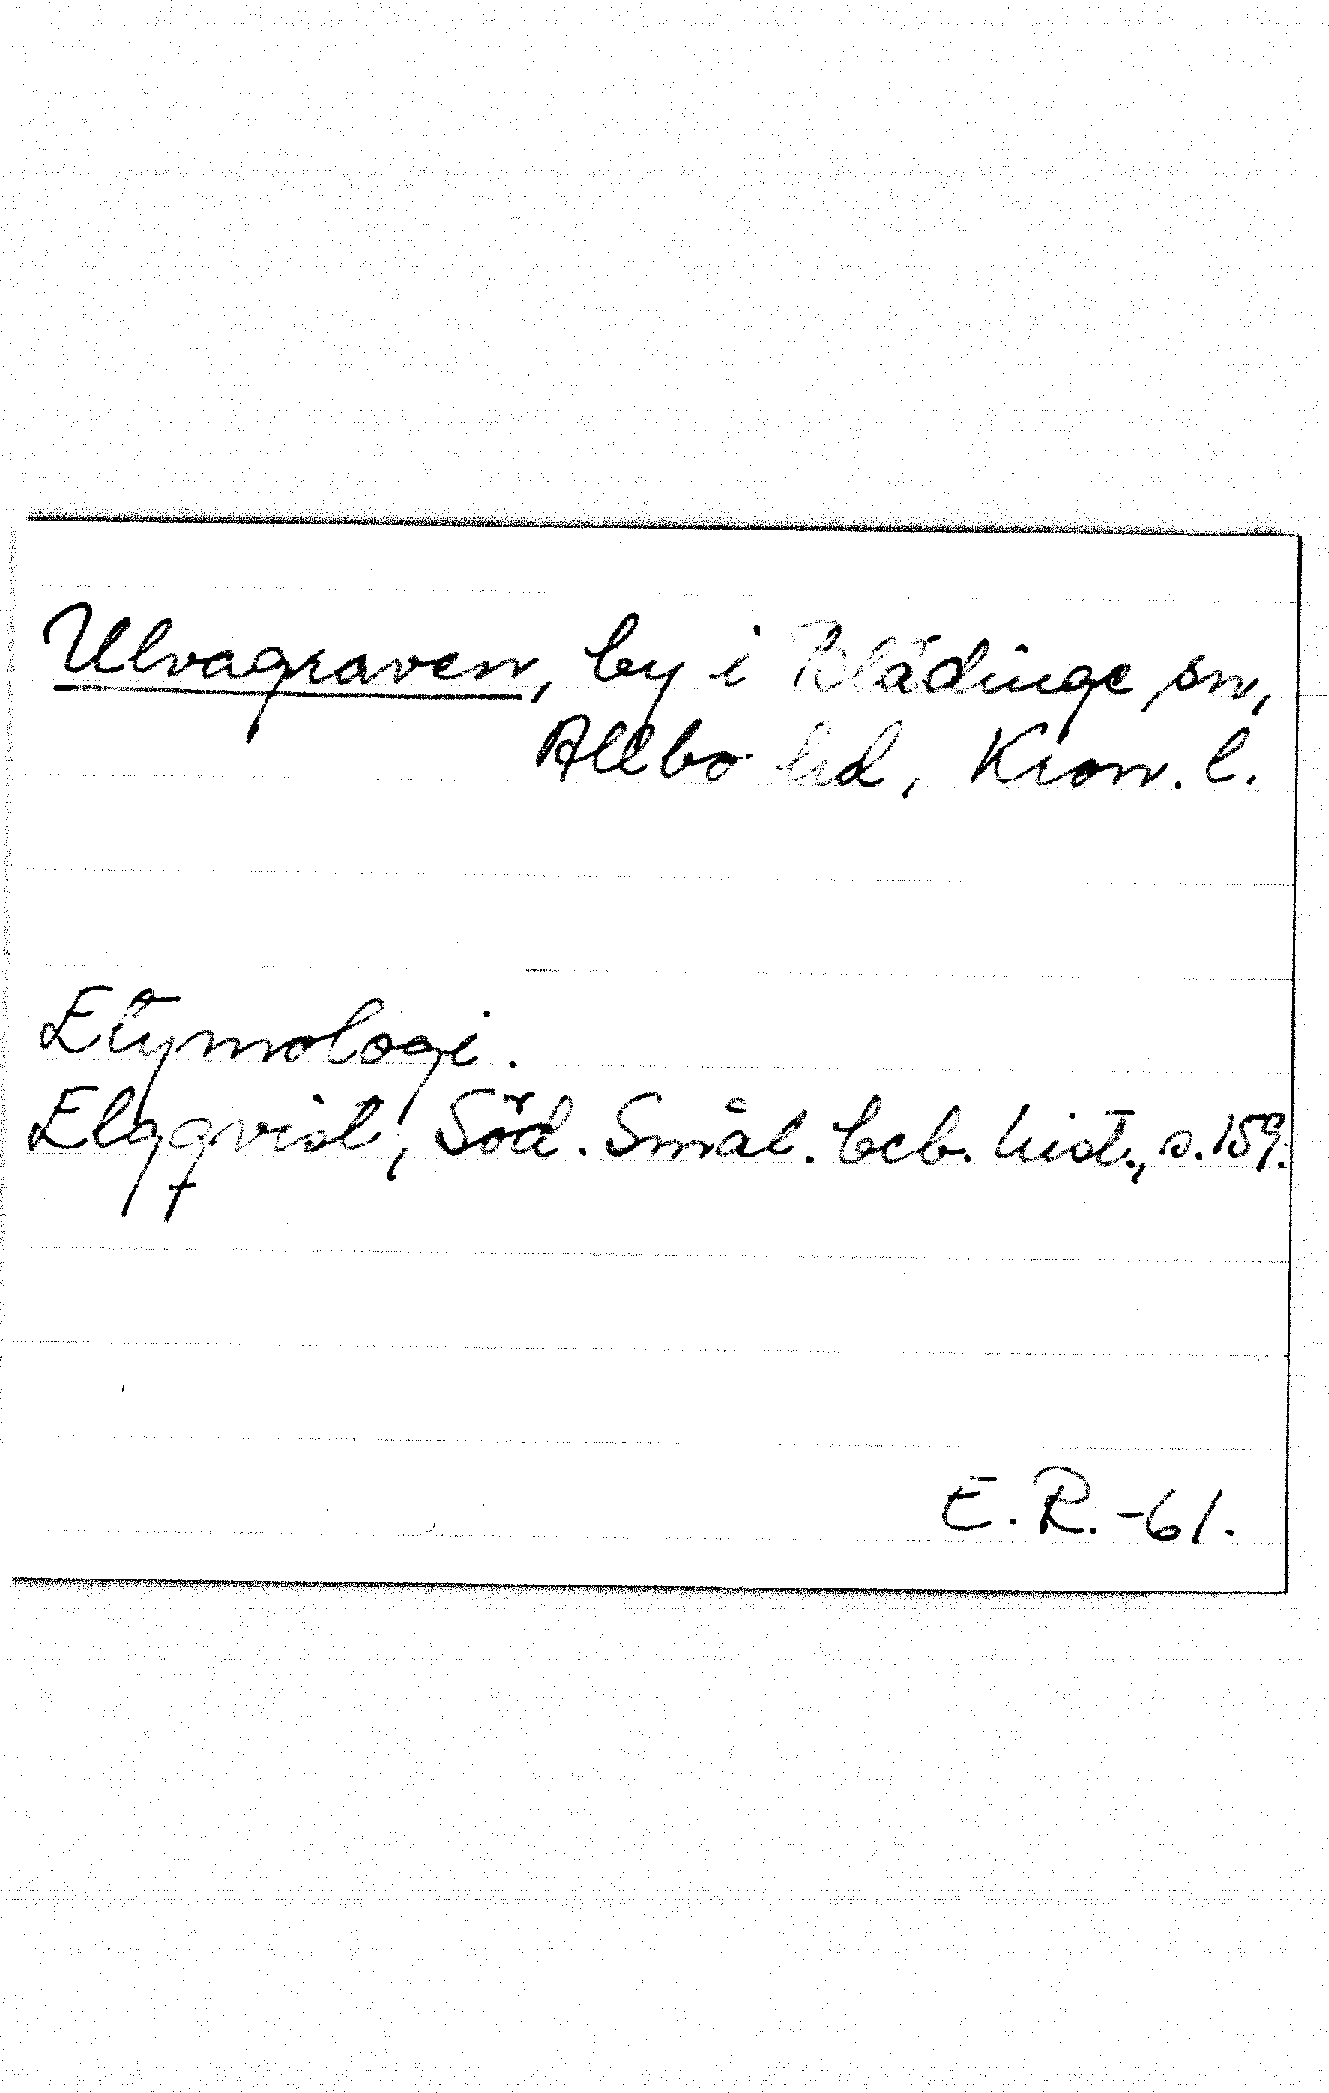 Ulvagraven, by i Blädinge sn,
Allbo hd, Kron. l.
Etymologi.
Elgqvist, Söd. Smål. beb. hist., s. 159.
E. R. -61.